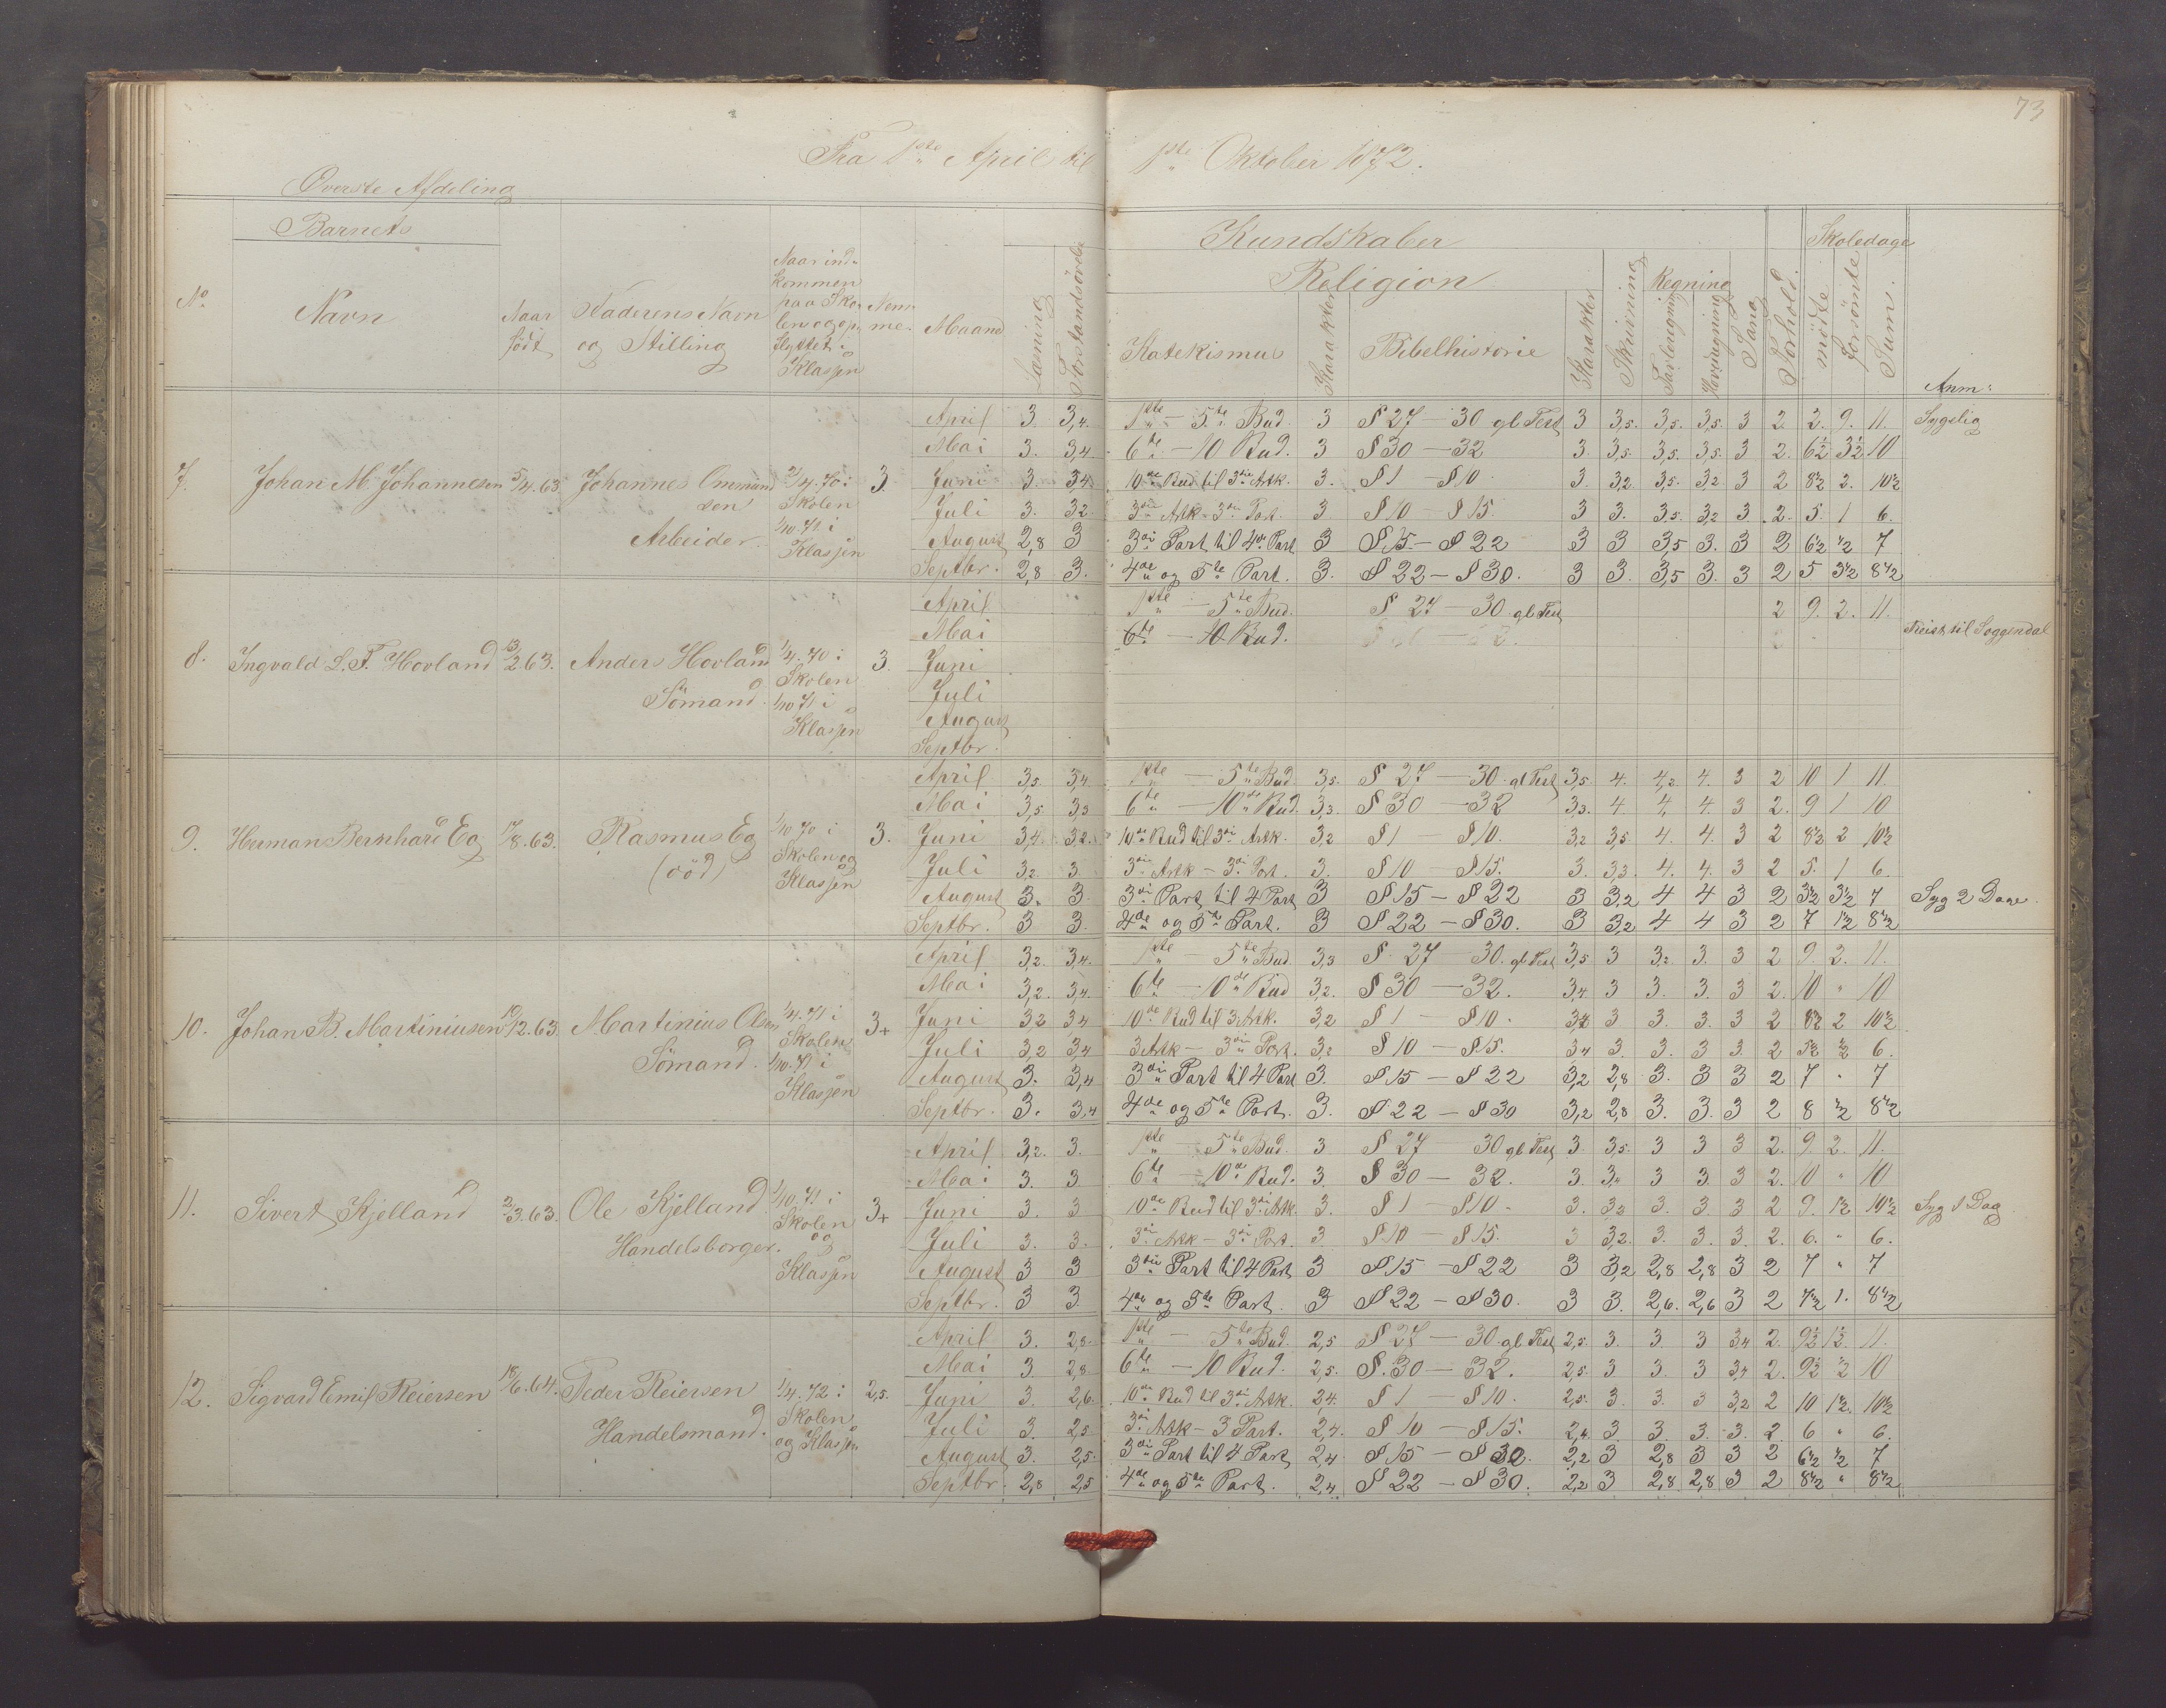 73
Fra 1ste April til 1ste Oktober 1872.
Øverste Afdeling
Barnets
No
Navn
Naar født
Faderens Navn og Stilling
Naar ind-
kommen
paa Sko-
len og op-
flyttet i
Klassen
Nem-
me.
Maaned
Læsning
Forstandsøvelse
Kundskaber
Religion
Katekismus
Karakter
Bibelhistorie
Karakter
Skrivning
Regning
Tavleregning
Hovedregning
Sang
Forhold.
Skoledage
mødte
forsømte
Sum.
Anm:
7. Johan M. Johannesen 5/4.63 Johannes Ommundsen Arbeider. 2/4.70 i Skolen 1/10.71 i Klassen 3.
April 3. 3,4. 1ste - 5te Bud. 3 § 27 - 30 gl Test 3 3,5. 3,5. 3,5. 3 2. 2. 9. 11. Sygelig
Mai 3. 3,4 6te - 10 Bud. 3 § 30 - 32 3. 3,5 3,5. 3,5. 3 2. 6½ 3½ 10
Juni 3 3,4 10de Bud til 3die Artk. 3. § 1 - § 10 3. 3,2 3,5. 3,2 3 2 8½ 2. 10½
Juli 3. 3,2. 3die Artk - 3die Part. 3 § 10 - § 15. 3 3. 3,5. 3,2 3 2. 5. 1 6.
August 2,8 3 3die Part til 4de Part 3 § 15 - § 22 3 3 3,5 3. 3 2 6½ ½ 7
Septbr. 2,8 3. 4de og 5te Part. 3. § 22 - § 30. 3 3. 3,5 3. 3 2 5 3½ 8½
8. Ingvald S. T. Hovland 13/2.63. Anders Hovland Sömand. 1/4.70 i Skolen 1/10 71 i Klassen 3.
April 1ste - 5te Bud. § 27 - 30 gl Test 2 9. 2. 11.
Mai 6te - 10 Bud. Reist til Soggendal
Juni
Juli
August
Septbr.
9. Herman Bernhard Eg 17/8.63. Rasmus Eg (död) 1/10 70 i Skolen og Klassen 3.
April 3,5. 3,4 1ste - 5te Bud 3,5. § 27 - 30. gl Test 3,5 4. 4,2. 4. 3 2 10 1 11.
Mai 3,5 3,3 6te - 10de Bud. 3,3. § 30 - 32 3,3. 4. 4, 4. 3 2. 9 1 10
Juni 3,4. 3,2. 10de Bud til 3die Artk. 3,2 § 1 - § 10. 3,2 3,5 4. 4. 3 2 8½ 2 10½
Juli 3,2 3. 3die Artk - 3die Part. 3. § 10 - § 15. 3. 3,3. 4. 4. 3 2 5. 1 6.
August 3. 3 3die Part til 4 Part 3 § 15 - § 22 3 3,2 4 4 3 2 3½ 3½ 7 Syg 2 Dage.
Septbr. 3 3. 4de og 5te Part. 3 § 22 - § 30. 3 3,2 4 4 3 2 7 1½ 8½
10. Johan B. Martiniusen 10/12.63. Martinius Olsen Sömand. 1/4.71 i Skolen 1/10.71 i Klassen 3+
April 3,2. 3,4. 1ste - 5te Bud 3,3 § 27 - 30. gl Test 3,5 3 3,2. 3. 3 2 9. 2. 11.
Mai 3,2. 3,4. 6te - 10de Bud 3,2. § 30 - 32. 3,4 3 3. 3. 3 2. 10 " 10
Juni 3,2 3,4 10de Bud til 3 Artk. 3,2 § 1 - § 10. 3,4 3 3. 3. 3 2 8½ 2 10½
Juli 3,2 3,4 3 Artk - 3die Part. 3,2 § 10 - § 15. 3,4 3. 3. 3 3. 2 5½ ½ 6.
August 3. 3,4 3die Part til 4 Part 3. § 15 - § 22 3,2 2,8 3. 3 3 2 7 " 7
Septbr. 3. 3,4 4de og 5te Part. 3. § 22 - § 30 3,2 2,8 3. 3. 3 2 8 ½ 8½
11. Sivert Kjelland 2/3.63. Ole Kjelland Handelsborger. 1/10.71 i Skolen og Klassen 3+
April 3,2. 3. 1ste - 5te Bud. 3 § 27 30 gl Test 3. 3,5. 3 3 3 2. 9. 2. 11.
Mai 3. 3 6te - 10de Bud. 3. § 30 - 32. 3. 3,4 3 3. 3 2. 10 " 10
Juni 3. 3 10de Bud til 3die Artk. 3. § 1 - § 10. 3. 3,3 3. 3. 3 2 9. 1½ 10½ Syg 1 Dag
Juli 3. 3. 3die Artk - 3die Part. 3 § 10 - § 15. 3 3,2. 3. 3. 3. 2. 6. " 6.
August 3 3 3die Part til 4 Part 3 § 15 - § 22 3 3,2 2,8 2,8 3 2 7 " 7
Septbr. 3 3 4de og 5te Part. 3 § 22 - § 30. 3 3. 2,6. 2,6 3 2 7½ 1. 8½
12. Sigvard Emil Reiersen 18/6.64. Peder Reiersen Handelsmand. 1/4.72 i Skolen og Klassen 2,5.
April 3. 2,8. 1ste - 5te Bud. 2,5 § 27 - 30. gl Test 2,5. 3. 3. 3 3,4 2. 9½ 1½ 11.
Mai 3 2,8 6te - 10 Bud. 2,5. § 30 - 32. 2,5. 3 3. 3 3,4 2. 9½ ½ 10
Juni 3. 2,6. 10de Bud til 3die Artk. 2,4. § 1 - § 10. 2,5. 3. 3. 3 3,2 2 10 1½. 10½
Juli 3. 2,5 3die Artk - 3 Part. 2,4. § 10 - § 15. 2,4. 3. 3. 3. 3. 2. 6 " 6.
August 3. 2,5. 3die Part til 4 Part 2,4 § 15 - § 30. 2,2 3 2,8 3 3 2 6½ ½ 7
Septbr. 2,8 2,5 4de og 5te Part. 2,4 § 22 - § 30. 2,2 3 2,8 2,8 3 2 8½ " 8½